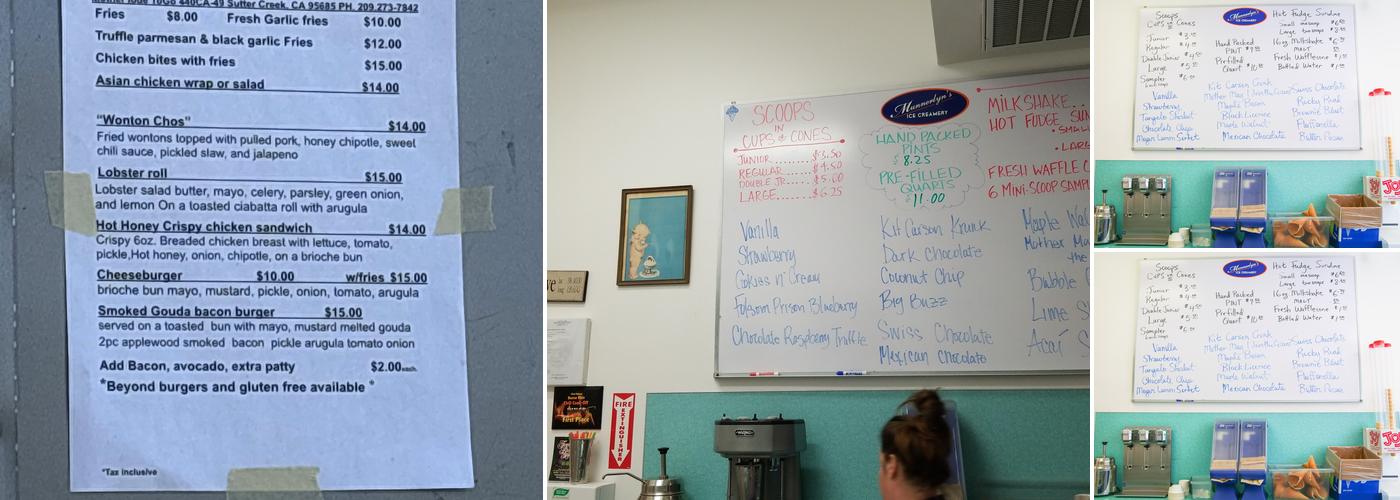 Sutter Creek, CA 95685 PH. 209.273-7842
Fries $8.00 Fresh Garlic fries $10.00
Truffle parmesan & black garlic Fries $12.00
Chicken bites with fries $15.00
Asian chicken wrap or salad $14.00
"Wonton Chos" $14.00
Fried wontons topped with pulled pork, honey chipotle, sweet
chili sauce, pickled slaw, and jalapeno
Lobster roll $15.00
Lobster salad butter, mayo, celery, parsley, green onion,
and lemon On a toasted ciabatta roll with arugula
Hot Honey Crispy chicken sandwich $14.00
Crispy 6oz. Breaded chicken breast with lettuce, tomato,
pickle,Hot honey, onion, chipotle, on a brioche bun
Cheeseburger $10.00 w/fries $15.00
brioche bun mayo, mustard, pickle, onion, tomato, arugula
Smoked Gouda bacon burger $15.00
served on a toasted bun with mayo, mustard melted gouda
2pc applewood smoked bacon pickle arugula tomato onion
Add Bacon, avocado, extra patty $2.00 each
*Beyond burgers and gluten free available *
*Tax inclusive
SCOOPS
IN
CUPS & CONES
JUNIOR........$3.50
REGULAR.......$4.50
DOUBLE JR.....$5.00
LARGE.........$6.25
Mannerlyn's
ICE CREAMERY
HAND PACKED
PINTS
$8.25
PRE-FILLED
QUARTS
$11.00
MILKSHAKE...
HOT FUDGE SUN
• SMAL
• LARG
FRESH WAFFLE C
6 MINI-SCOOP SAMPL
Vanilla
Strawberry
Cookies n' Cream
Folsom Prison Blueberry
Chocolate Raspberry Truffle
Kit Carson Krunk
Dark Chocolate
Coconut Chip
Big Buzz
Swiss Chocolate
Mexican Chocolate
Maple Wal
Mother Ma
the
Bubble
Lime S
Acai S
FIRE
EXTINGUISHER
First Place
Scoops
Cups or Cones
Junior
Regular
Double Junior
Large
Sampler
Mannerlyn's
Hand Packed
PINT
Pre-filled
Quart
Hot Fudge Sundae
Small
Large
16oz Milkshake
MALT
Fresh Wafflecone
Bottled Water
Vanilla
Strawberry
Tangelo Sherbet
Chocolate Chip
Kit Carson Crunk
Maple Bacon
Black Licorice
Maple Walnut
Mexican Chocolate
Swiss Chocolate
Rocky Road
Brownie Blast
Butter Pecan
Scoops
Cups or Cones
Junior
Regular
Double Junior
Large
Sampler
Mannerlyn's
Hand Packed
PINT
Pre-filled
Quart
Hot Fudge Sundae
Small
Large
16oz Milkshake
MALT
Fresh Wafflecone
Bottled Water
Vanilla
Strawberry
Tangelo Sherbet
Chocolate Chip
Kit Carson Crunk
Maple Bacon
Black Licorice
Maple Walnut
Mexican Chocolate
Swiss Chocolate
Rocky Road
Brownie Blast
Butter Pecan